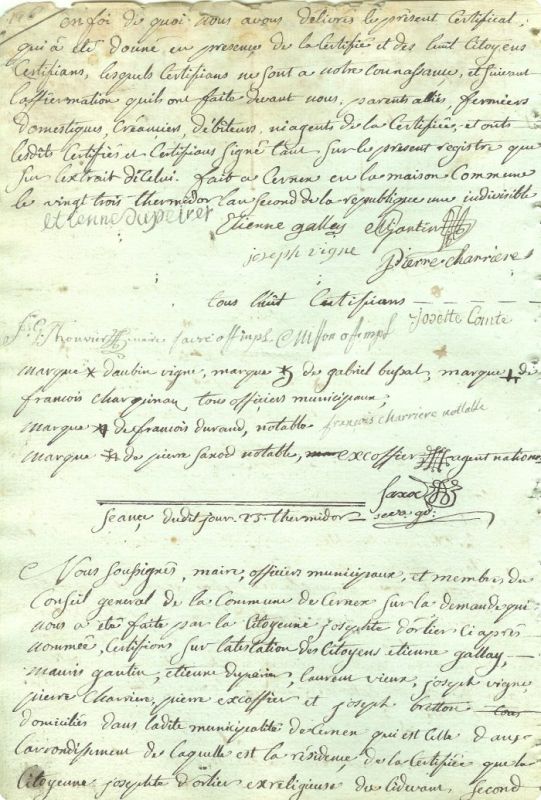 en foi de quoi nous avons délivré le présent Certificat
qui a été donné en présence de la Certifiée et des huit Citoyens
Certifians, lesquels Certifians ne sont a notre connaissance, et suivant
laffiermation quils ont faite devant nous, parents alliés, fermiers
Domestiques, Créanciers, débiteurs, ni agents de la Certifiée, et onts
lesdits Certifiée et Certifians signé tant sur le present registre que
sur lextrait dicelui. fait a Cernex en la maison Commune
le vingt trois thermidor lan second de la republique une indivisible
etienne duperier Etienne gallay M gantin
joseph vigne pierre charriere
tous huit Certifians josette Comte
Thouvier maire favre off
marque x daubin vigne, marque de gabriel bussat, marque de
francois charginan, tous officiers municipaux,
marque de francois durand, notable françois charriere notable
marque de pierre saxod notable, excoffier agent national
saxod
secre
Seance dudit jour 23 thermidor
Nous soussignés, maire, officiers municipaux, et membres du
Conseil general de la Commune de Cernex sur la demande qui
nous a été faite par la Citoyenne josephte dortier ci après
nommée, Certifions sur lattestation des Citoyens etienne gallay,
mauris gantin, etienne duperier, laurent vieux, joseph vigne
pierre Charriere, pierre excoffier et joseph bretton tous
domiciliés dans ladite municipalité de Cernex qui est Celle dans
larrondissement de laquelle est la residence de la Certifiée que la
Citoyenne josephte dortier exreligieuse du cidevant second